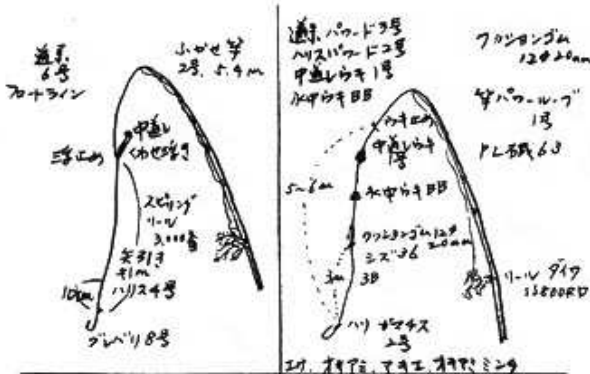 道糸
6号
フロートライン
ふかせ竿
2号, 5.4m
中通し
くわせ浮き
浮止め
スピニング
リール
3,000番
矢引き
1m
ハリス4号
10cm
グレバリ8号
道糸パワード3号
ハリスパワード2号
中通しウキ1号
水中ウキBB
クッションゴム
1.2φ20mm
竿パワーループ
1号
ウキ止め
中通しウキ
1号
5~6m
水中ウキBB
クッションゴム1.2φ
20mm
3m
3B
リール ダイワ
SS800RD
ハリ ガマチヌ
2号
エサ, オキアミ, マキエ, オキアミミンチ